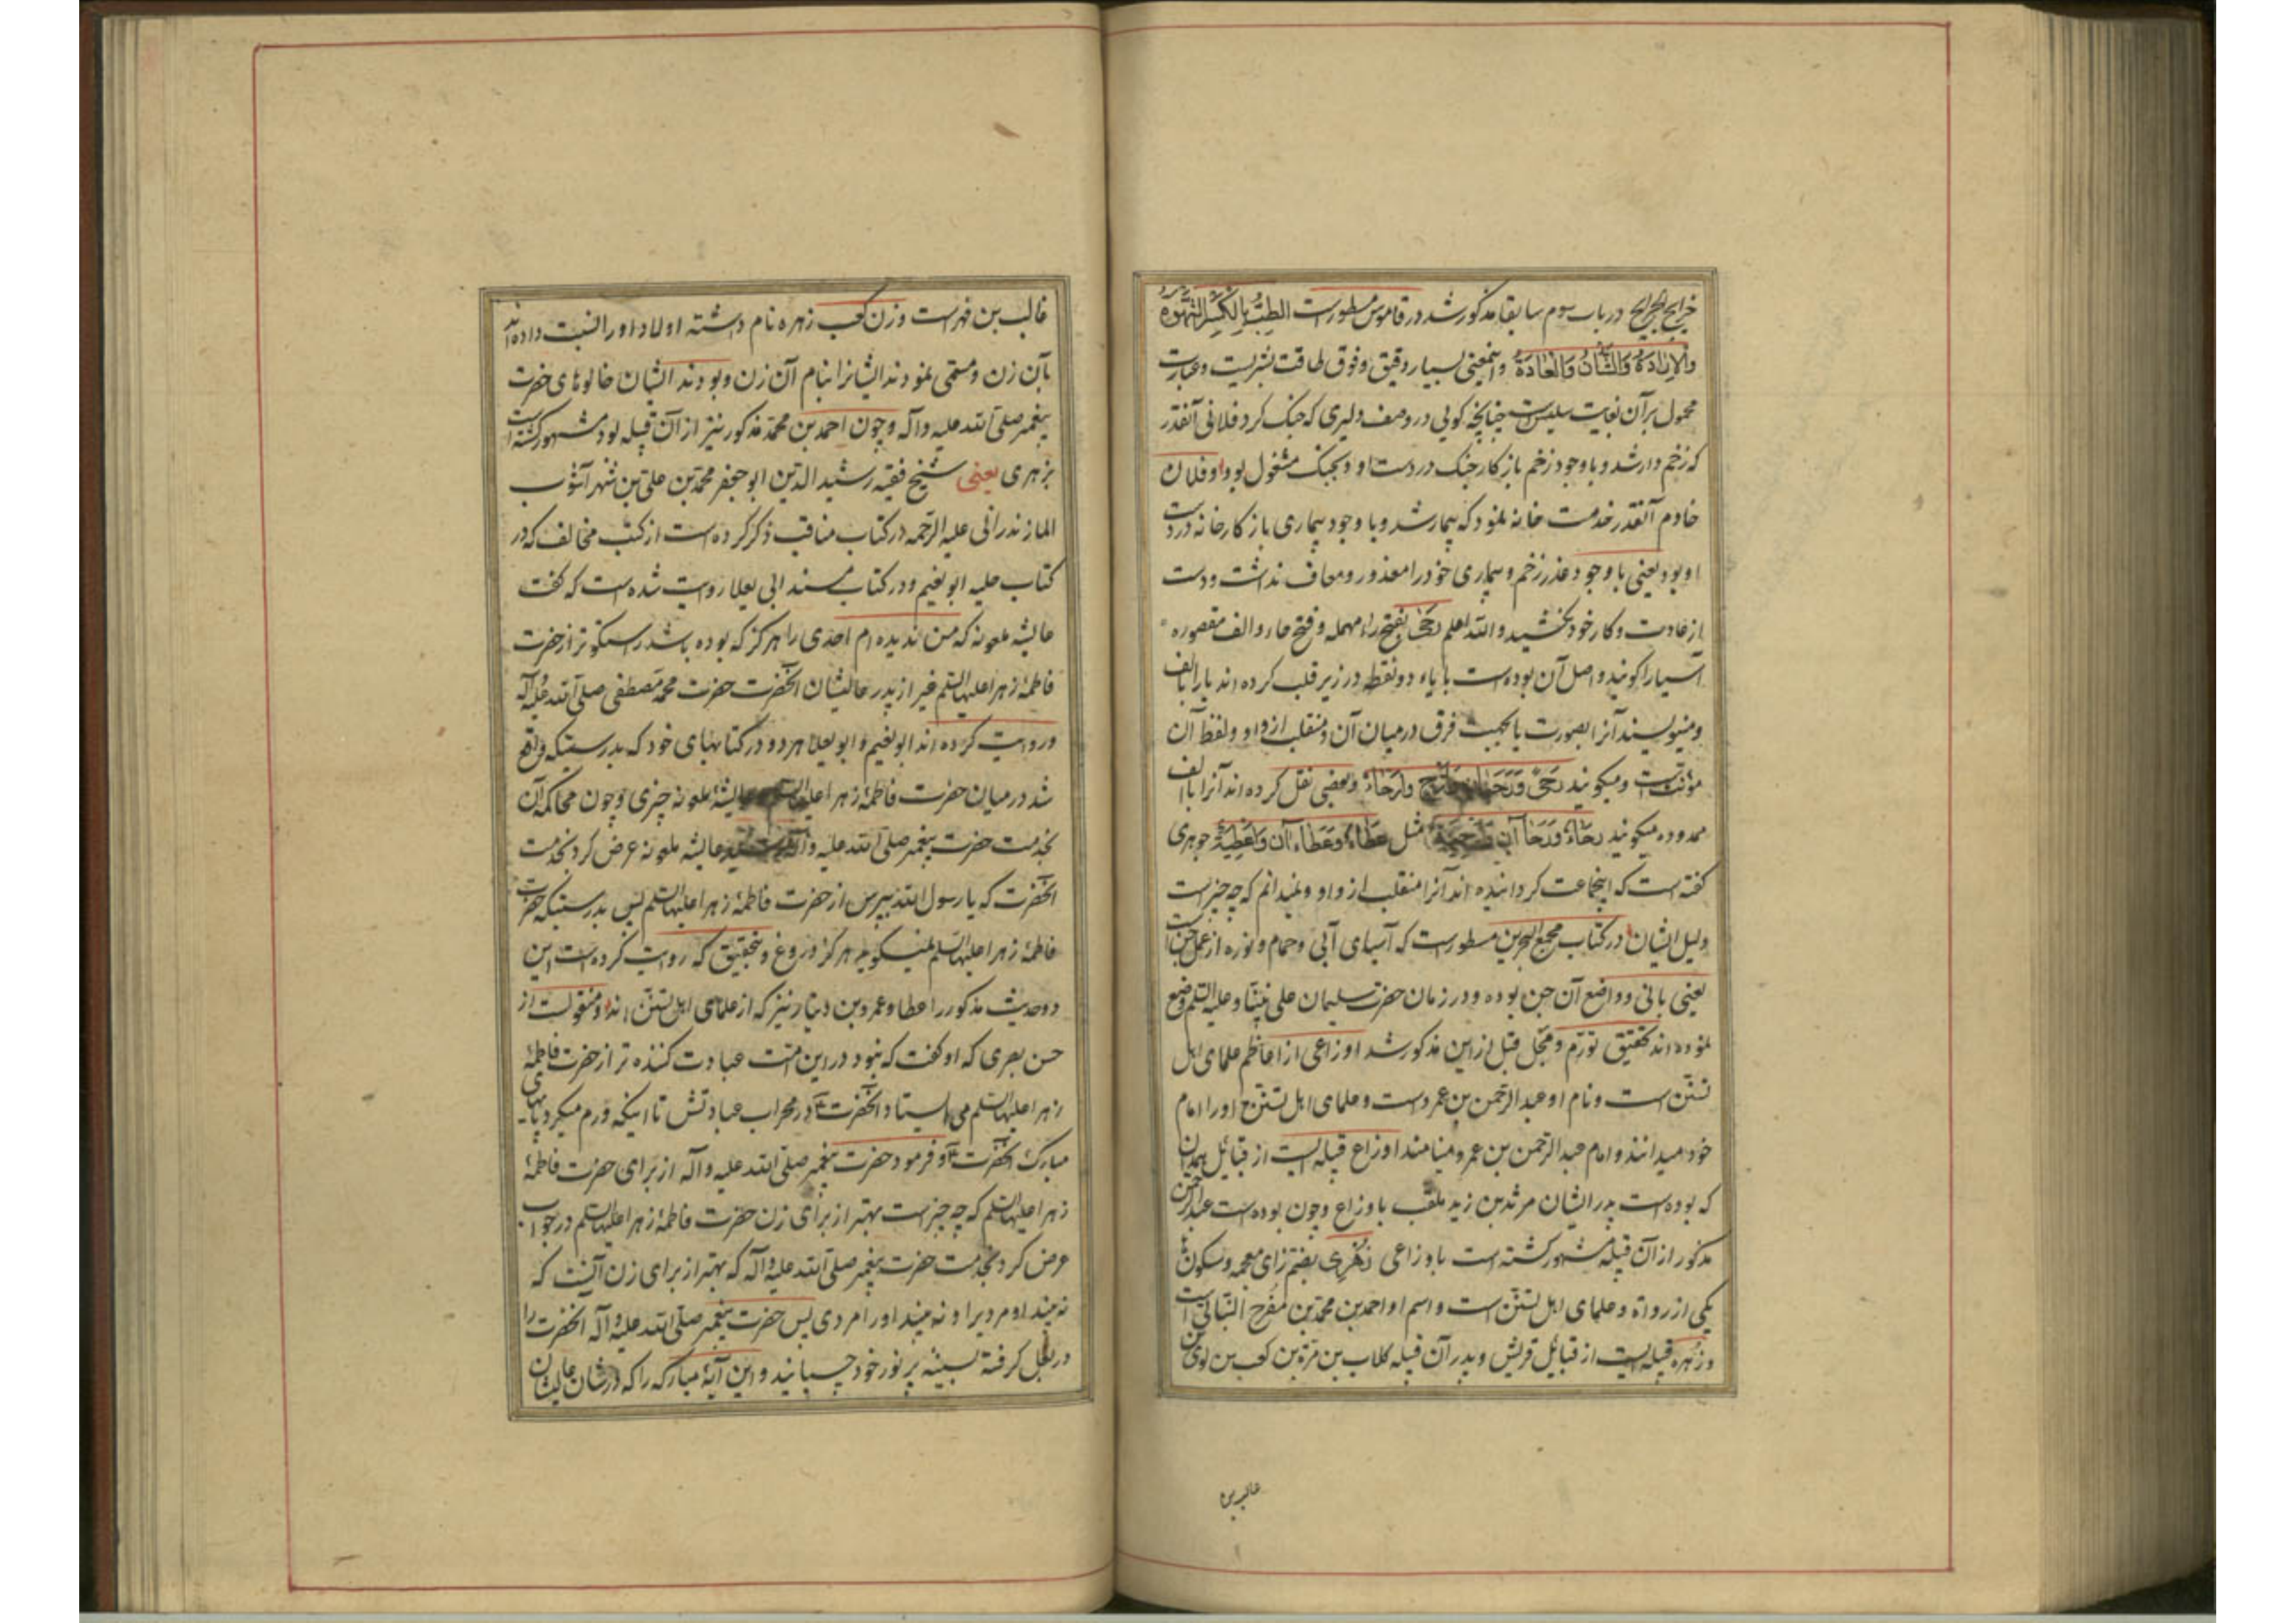 خرایج الجرایح در باب سوم سابقا مذکور شد در قاموس مسطورست الطِبُّ بِالْکَسْرِ الشَّهْوَةُ
وَالْاِرَادَةُ وَالشَّانُ وَالْعَادَةُ و اینمعنی بسیار دقیق و فوق طاقت بشریست و عبارت
محمول بر آن بغایت سلیس است چنانچه کویی در وصف دلیری که جنک کرد فلانی آنقدر
که زخم دار شد و با وجود زخم باز کار جنک در دست او و بجنک مشغول بود و فلان
خادم آنقدر خدمت خانه نمود که بیمار شد و با وجود بیماری باز کار خانه در دست
او بود یعنی با وجود عذر زخم و بیماری خود را معذور و معاف نداشت و دست
از عادت و کار خود نکشید والله اعلم رحی بفتح راء مهمله و فتح حاء و الف مقصوره
آسیا را کویند و اصل آن بوده است با یاء دو نقطه در زیر قلب کرده اند یا را بالف
و مینویسند آنرا بصورت یا بجهت فرق در میان آن و منقلب از واو و لفظ آن
مؤنث است و میکویند رَحیً وَرَحَیان وَارَحٍ وَارَحَاءٌ و بعضی نقل کرده اند آنرا با الف
ممدوده میکویند رحَاءٌ وَرَحَاآنِ وَارْحِیَةٌ مثل عَطَاءٌ وَعَطَاآنِ وَاَعْطِیَةٌ جوهری
کفته است که اینجماعت کردانیده اند آنرا منقلب از واو و نمیدانم که چه چیز است
دلیل ایشان در کتاب مجمع البحرین مسطورست که آسیای آبی و حمام و نوره از عمل جن است
یعنی بانی و واضع آن جن بوده و در زمان حضرت سلیمان علی نبینا و علیه السّلم وضع
نموده اند تحقیق تورّم و مجل قبل ازین مذکور شد اوزاعی از اعاظم علمای اهل
تسنّن است و نام او عبد الرّحمن بن عمروست و علمای اهل تسنّن او را امام
خود میدانند و امام عبد الرّحمن بن عمرو مینامند اوزاع قبیله ایست از قبائل همدان
که بوده است پدر ایشان مرثد بن زید ملقب باوزاع و چون بوده است عبد الرحمن
مذکور از آن قبیله مشهور کشته است باوزاعی زُهْرِی بضم زای معجمه و سکون
یکی از رواة و علمای اهل تسنّن است و اسم او احمد بن محمّد بن مفرح النباتی است
و زهره قبیله ایست از قبائل قریش و پدر آن قبیله کلاب بن مرّة بن کعب بن لوی بن
غالب بن
غالب بن فهرست و زن کعب زهره نام داشته اولاد او را نسبت داده اند
بآن زن و مسمّی نمودند ایشانرا بنام آن زن و بودند ایشان خالوهای حضرت
پیغمبر صلّی الله علیه وآله و چون احمد بن محمّد مذکور نیز از آن قبیله بود مشهور کشته است
بزهری یعنی شیخ فقیه رشید الدّین ابو جعفر محمّد بن علی بن شهر آشوب
المازندرانی علیه الرّحمه در کتاب مناقب ذکر کرده است از کتب مخالف که در
کتاب حلیه ابو نعیم و در کتاب مسند ابی یعلا روایت شده است که کفت
عایشه ملعونه که من ندیده ام احدی را هرکز که بوده باشد راستکوتر از حضرت
فاطمهٔ زهرا علیها السّلم غیر از پدر عالیشان آنحضرت حضرت محمّد مصطفی صلّی الله علیه وآله
و روایت کرده اند ابو نعیم و ابو یعلا هر دو در کتابهای خود که بدرستیکه واقع
شد در میان حضرت فاطمهٔ زهرا علیها السّلم و عایشهٔ ملعونه چیزی و چون محاکمه آن
بخدمت حضرت پیغمبر صلّی الله علیه وآله عایشه ملعونه عرض کرد بخدمت
آنحضرت که یا رسول الله بپرس از حضرت فاطمهٔ زهرا علیها السّلم پس بدرستیکه حضرت
فاطمهٔ زهرا علیها السّلم نمیکوید هرکز دروغ و بتحقیق که روایت کرده است این
دو حدیث مذکور را عطا و عمرو بن دینار نیز که از علمای اهل تسنّن اند و منقولست از
حسن بصری که او کفت که نبود در این امّت عبادت کننده تر از حضرت فاطمهٔ
زهرا علیها السّلم می ایستاد آنحضرت در محراب عبادتش تا اینکه ورم میکرد پاهای
مبارک آنحضرت و فرمود حضرت پیغمبر صلّی الله علیه وآله از برای حضرت فاطمهٔ
زهرا علیها السّلم که چه چیز است بهتر از برای زن حضرت فاطمهٔ زهرا علیها السّلم در جواب
عرض کرد بخدمت حضرت پیغمبر صلّی الله علیه وآله که بهتر از برای زن آنست که
نه بیند او مردیرا و نه بیند او را مردی پس حضرت پیغمبر صلّی الله علیه وآله آنحضرت را
در بغل کرفته بسینهٔ پر نور خود چسبانید و این آیهٔ مبارکه را که در شان عالیشان